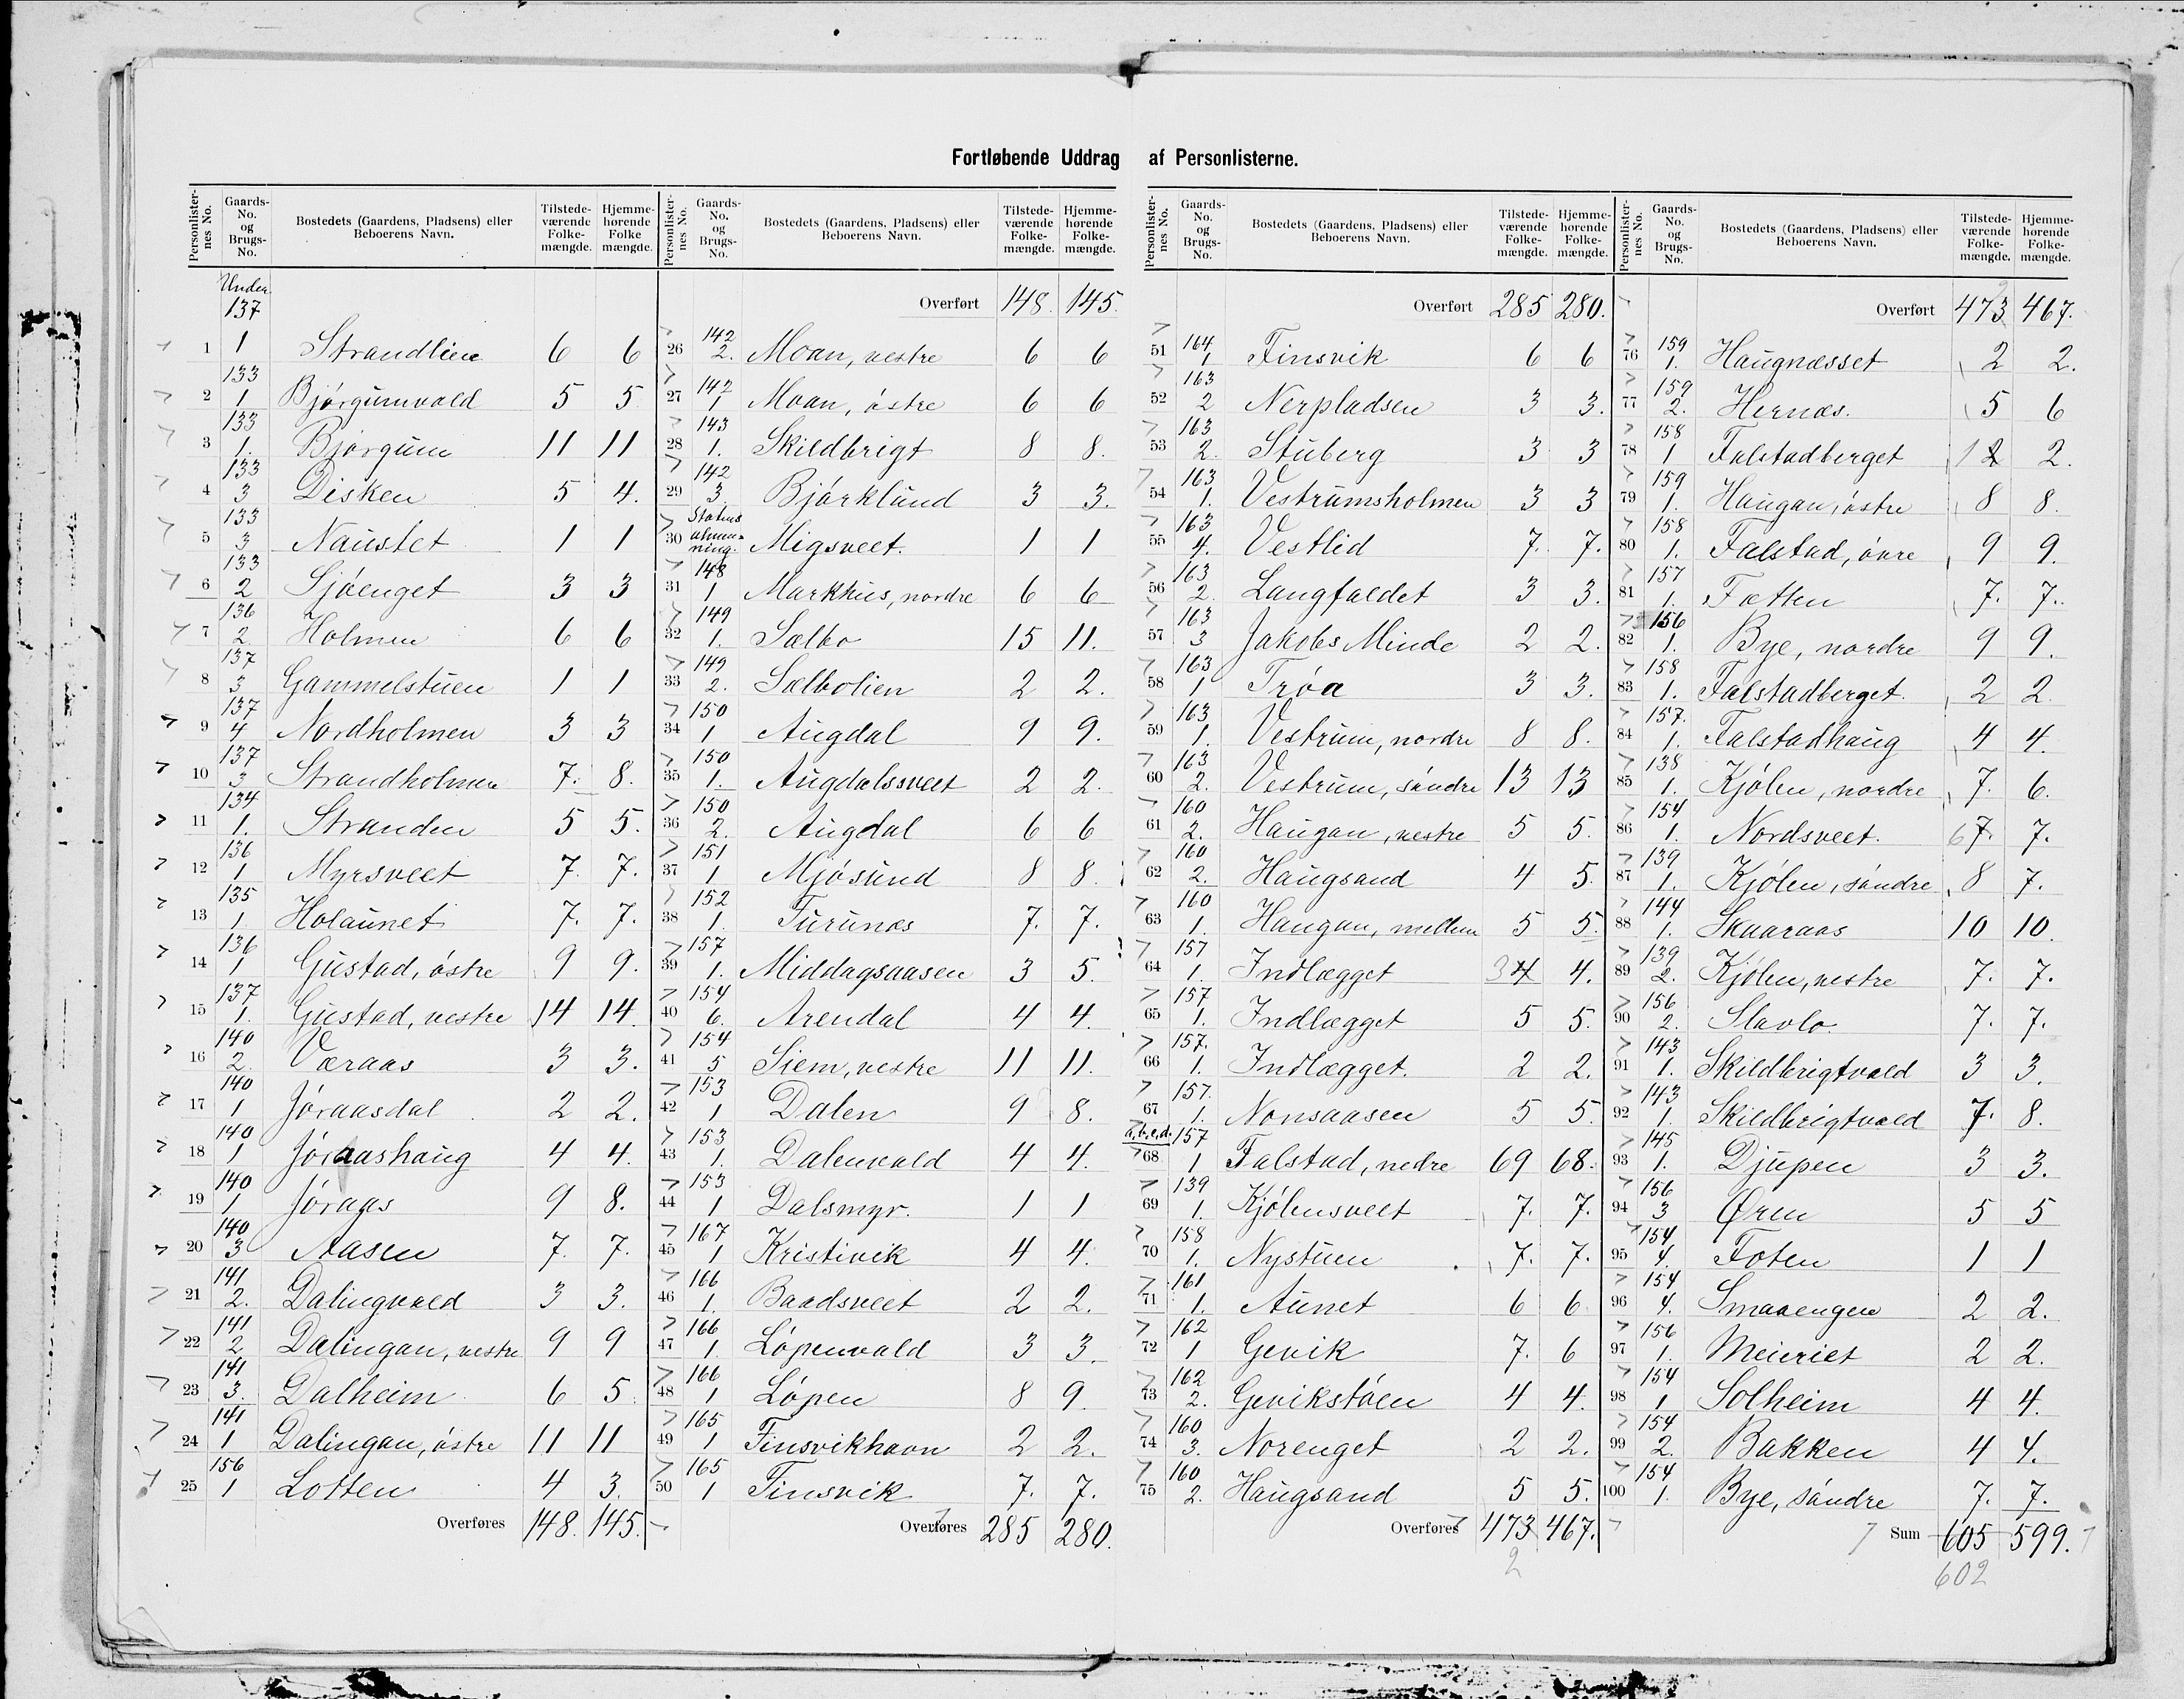 Fortløbende Uddrag af Personlisterne.
Personlisternes No. Gaards-No. og Brugs-No. Bostedets (Gaardens, Pladsens) eller Beboerens Navn. Tilstedeværende Folkemængde. Hjemmehørende Folkemængde.
Under 137
1 1 Strandlien 6 6
2 133 1 Bjørgumvald 5 5
3 133 1. Bjørgum 11 11
4 133 3 Disken 5 4.
5 133 3 Naustet 1 1
6 133 2 Sjøenget 3 3
7 136 2. Holmen 6 6
8 137 3 Gammelstuen 1 1
9 137 4 Nordholmen 3 3
10 137 3 Strandholmen 7. 8.
11 134 1. Stranden 5 5.
12 136 1 Myrsveet 7. 7.
13 135 1 Holaunet 7. 7.
14 136 1 Gustad, östre 9 9.
15 137 1. Gustad, vestre 14 14
16 140 2. Væraas 3 3.
17 140 1 Jøraasdal 2 2.
18 140 1 Jøraashaug 4 4.
19 140 1 Jøraas 9 8.
20 140 3 Aasen 7. 7.
21 141 2. Dalingvald 3 3.
22 141 2 Dalingan, vestre 9 9
23 141 3. Dalheim 6 5.
24 141 1 Dalingan, östre 11 11
25 156 1 Lotten 4 3.
Overføres 148. 145.
Personlisternes No. Gaards-No. og Brugs-No. Bostedets (Gaardens, Pladsens) eller Beboerens Navn. Tilstedeværende Folkemængde. Hjemmehørende Folkemængde.
Overført 148. 145.
26 142 2. Moan, vestre 6 6
27 142 1 Moan, östre 6 6
28 143 1. Skildbrigt 8 8.
29 142 3. Bjørklund 3 3.
30 Statens almenning. Migsveet. 1 1
31 148 1 Markhus, nordre 6 6
32 149 1. Salbo 15 11.
33 149 2. Salbolien 2 2.
34 150 1 Augdal 9 9.
35 150 1. Augdalssveet 2 2.
36 150 2. Augdal 6 6
37 151 1 Mjøsund 8 8.
38 152 1. Furunæs 7. 7.
39 157 1. Middagsaasen 3 5.
40 154 6. Arendal 4 4.
41 154 5 Siem, vestre 11 11.
42 153 1 Dalen 9 8.
43 153 1. Dalenvald 4 4.
44 153 1 Dalsmyr. 1 1
45 167 1 Kristivik 4 4.
46 166 1. Baadsveet 2 2.
47 166 1. Løpenvald 3 3.
48 166 1 Løpen 8 9.
49 165 1 Finsvikhavn 2 2.
50 165 1 Finsvik 7. 7.
Overføres 285 280.
Personlisternes No. Gaards-No. og Brugs-No. Bostedets (Gaardens, Pladsens) eller Beboerens Navn. Tilstedeværende Folkemængde. Hjemmehørende Folkemængde.
Overført 285 280.
51 164 1 Finsvik 6 6
52 163 2 Nerpladsen 3 3.
53 163 2. Stuberg 3 3
54 163 1. Vestrumsholmen 3 3
55 163 4. Vestlid 7. 7.
56 163 2. Langfaldet 3 3.
57 163 3 Jakobs Minde 2 2.
58 163 1 Trøa 3 3.
59 163 1. Vestrum, nordre 8 8.
60 163 2. Vestrum, söndre 13 13
61 160 2. Haugan, vestre 5 5.
62 160 2. Haugsand 4 5.
63 160 1. Haugan, mellem 5 5.
64 157 1. Indlægget 3 4 4.
65 157 1. Indlægget 5 5.
66 157. 1. Indlægget. 2 2.
67 157. 1. Nonsaasen 5 5.
a,b,c,d. 68 157 1 Falstad, nedre 69 68.
69 139 1. Kjølensveet 7. 7.
70 158 1. Nystuen 7. 7.
71 161 1. Aunet 6 6
72 162 1 Gevik 7. 6
73 162 2. Gevikstöen 4 4.
74 160 3. Norenget 2 2.
75 160 2. Haugsand 5 5.
Overføres 473 467.
2
Personlisternes No. Gaards-No. og Brugs-No. Bostedets (Gaardens, Pladsens) eller Beboerens Navn. Tilstedeværende Folkemængde. Hjemmehørende Folkemængde.
Overført 473 467.
76 159 1. Haugnæsset 2 2.
77 159 2. Hernæs. 5 6
78 158 1 Falstadberget 1 2 2.
79 159 1. Haugan, östre 8 8.
80 158 1. Falstad, övre 9 9.
81 157 1. Fætten 7. 7.
82 156 1. Bye, nordre 9 9.
83 158 1. Falstadberget. 2 2.
84 157. 1. Falstadhaug 4 4.
85 138 1. Kjølen, nordre 7. 6.
86 154 1. Nordsveet. 6 7. 7.
87 139 1. Kjølen, söndre 8 7.
88 144 1. Skaaraas 10 10.
89 139 2. Kjølen, vestre 7. 7.
90 156 2. Slavlo. 7. 7.
91 143 1. Skildbrigtvald 3 3.
92 143 1. Skildbrigtvald 7. 8.
93 145 1. Djupen 3 3.
94 156 3 Øren 5 5
95 154 4. Foten 1 1
96 154 4. Smaaengen 2 2.
97 156 1. Meieriet 2 2.
98 154 1 Solheim 4 4.
99 154 2. Bakken 4 4.
100 154 1. Bye, söndre 7. 7.
Sum 605 599.
602